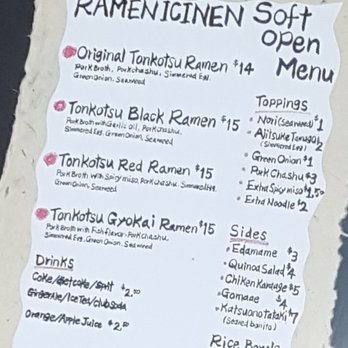 RAMEN ICINEN Soft
Open
Menu
Original Tonkotsu Ramen $14
Pork Broth, Pork chashu, Simmered Egg,
Green Onion, Seaweed
Tonkotsu Black Ramen $15
Pork Broth with Garlic oil, Pork chashu,
Simmered Egg, Green Onion, Seaweed
Tonkotsu Red Ramen $15
Pork Broth with Spicy miso, Pork chashu, Simmered Egg,
Green Onion, Seaweed
Tonkotsu Gyokai Ramen $15
Pork Broth with Fish flavor, Pork chashu,
Simmered Egg, Green Onion, Seaweed
Drinks
Coke/Diet coke/Sprit $2.00
Ginger Ale/Ice Tea/club soda
Orange/Apple Juice $2.50
Toppings
Nori (seaweed) $1
Ajitsuke Tamago $2
(Simmered Egg)
Green Onion $1
Pork Chashu $3
Extra Spicy miso $1.50
Extra Noodle $2
Sides
Edamame $3
Quinoa Salad $4
Chiken Karaage $5
Gomaae $4
Katsuono Tataki $7
(Seared bonito)
Rice Bowls